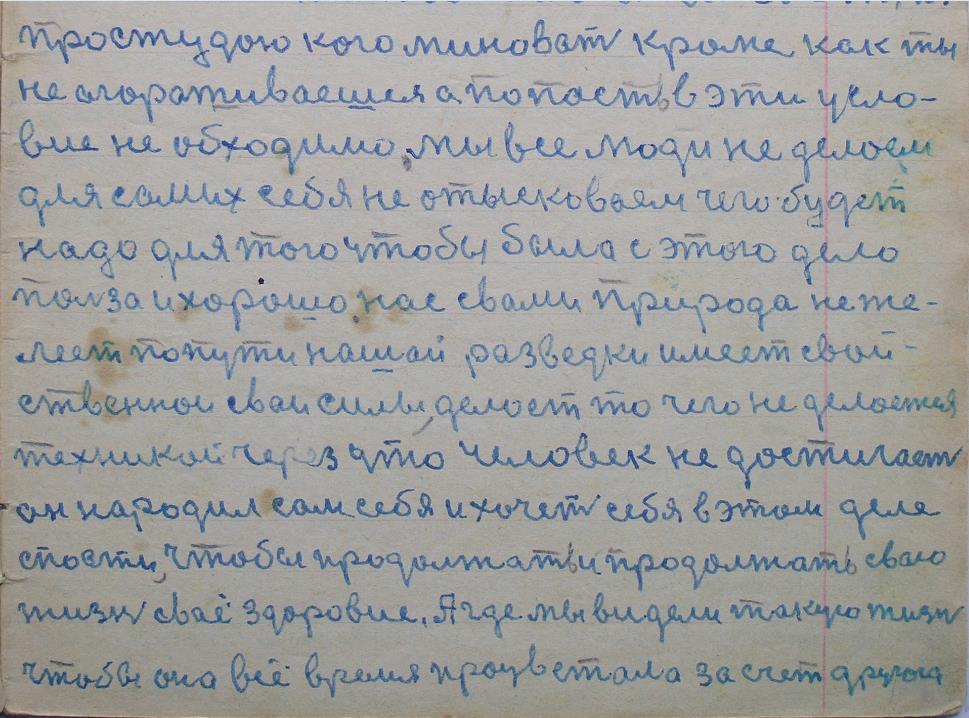 простудою кого миноват кроме как ты
не агораживаешися а попасть в эти усло-
вие не обходимо, мы все люди не делоем
для самих себя не отысковаем чего будет
надо для того чтобы была с этого дело
полза и хорошо, нас свами природа неже-
леет попути нашай разведки имеет свой-
ственной сваи силы, делоет то чего не делоется
техникой через что человек не достигает
он народил сам себя и хочет себя в этом деле
спости, чтобы продолжать и продолжать сваю
жизн сваё здоровие. А где мы видели такую жизн
чтобы она всё время процветала за счет другога